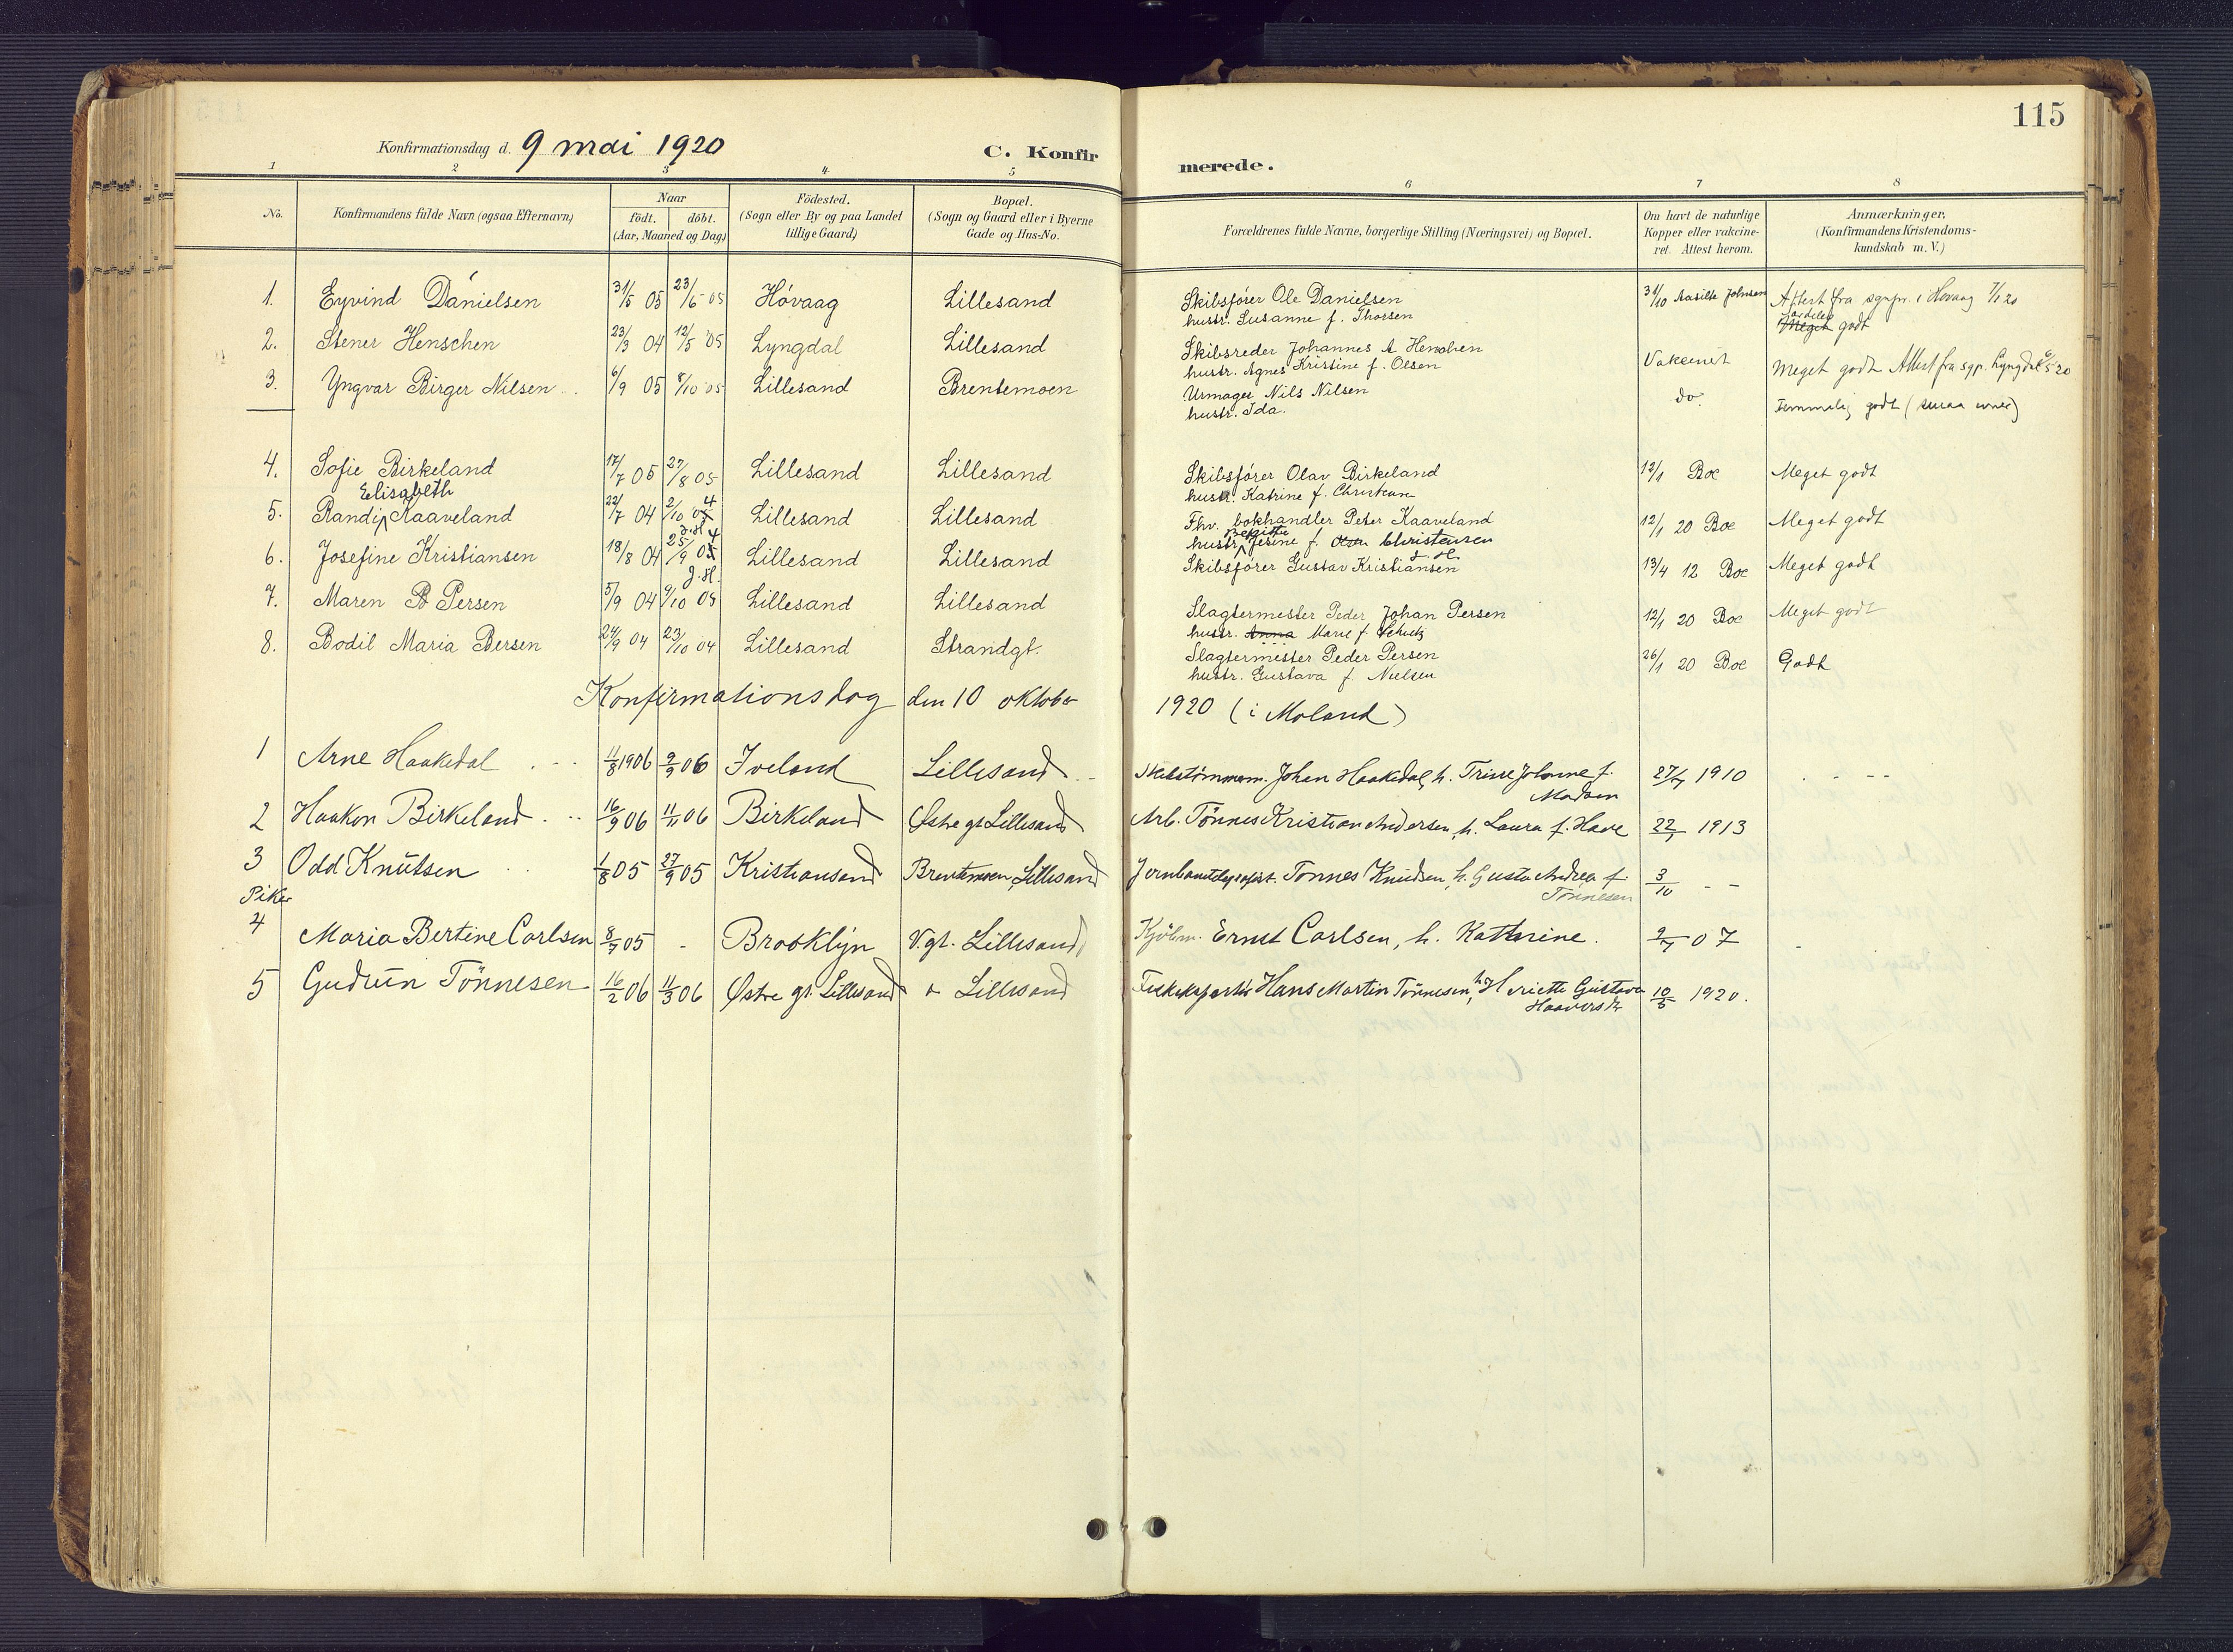 115
Konfirmationsdag d. 9 mai 1920 C. Konfirmerede.
1 2 3 4 5 6 7 8
No. Konfirmandens fulde Navn (ogsaa Efternavn) Naar födt. döbt. (Aar, Maaned og Dag) Födested. (Sogn eller By og paa Landet tillige Gaard) Bopæl. (Sogn og Gaard eller i Byerne Gade og Hus-No. Forældrenes fulde Navne, borgerlige Stilling (Næringsvei) og Bopæl. Om havt de naturlige Kopper eller vakcineret. Attest herom. Anmærkninger. (Konfirmandens Kristendomskundskab m. V.)
1. Eyvind Danielsen 31/5 05 23/6 05 Hóvaag Lillesand Skibsfórer Ole Danielsen 31/10 Johnsen Attest fra sgnpr. i Hovaag 7/1 20
hustr. Susanne f. Thorsen Meget godt
2. Stener Henschen 23/3 04 12/5 '05 Lyngdal Lillesand Skibsreder Johannes A Henschen Vakcinert Meget godt Attest fra sgp. Lyngdal 6/5 20
hustr. Agnes Kristine f. Olsen
3. Yngvar Birger Nilsen 6/9 05 8/10 05 Lillesand Brentemoen Urmager Nils Nilsen do. Temmelig godt (smaa evner)
hustr. Ida.
4. Sofie Birkeland 17/7 05 27/8 05 Lillesand Lillesand Skibsfórer Olav Birkeland 12/1 Boe Meget godt
hustr. Katrine f. Christensen
5. Randi Elisabeth Kaaveland 22/7 04 2/10 04 Lillesand Lillesand Fhv. bokhandler Peter Kaaveland 12/1 20 Boe Meget godt
hustr. Jesine f. Olsen Christensen
6. Josefine Kristiansen 18/8 04 25/9 04 J.H. Lillesand Lillesand Skibsfórer Gustav Kristiansen 13/4 12 Boe Meget godt
7. Maren B Persen 5/9 04 9/10 04 J.H. Lillesand Lillesand Slagtermester Peder Johan Persen 12/1 20 Boe Meget godt
hustr. Anna Marie f.
8. Bodil Maria Bersen 24/9 04 23/10 04 Lillesand Strandgt. Slagtermester Peder Persen 26/1 20 Boe Godt
hustr. Gustava f. Nielsen
Konfirmationsdag den 10 oktober 1920 (i Moland)
1 Arne Haakedal 11/8 1906 9/9 06 Iveland Lillesand Johan Haakedal, h. Trine Johanne f. Madsen 27/7 1910
2 Haakon Birkeland 16/9 06 11/11 06 Birkeland Østre gt. Lillesand Arb. Tönnes Kristian Andersen, h. Laura f. Have 22/1 1913
3 Odd Knutsen 1/8 05 27/9 05 Kristiansand Brentemoen, Lillesand Tønnes Knudsen, h. Gusta Andrea f. Tönnesen 3/10 - -
Piker
4 Maria Bertine Carlsen 8/7 05 - Brooklyn V.gt. Lillesand Kjöbm. Ernst Carlsen, h. Kathrine. 9/7 07
5 Gudrun Tönnesen 16/2 06 11/3 06 Østre gt. Lillesand Lillesand Hans Martin Tönnesen, h. Gustava 10/5 1920.